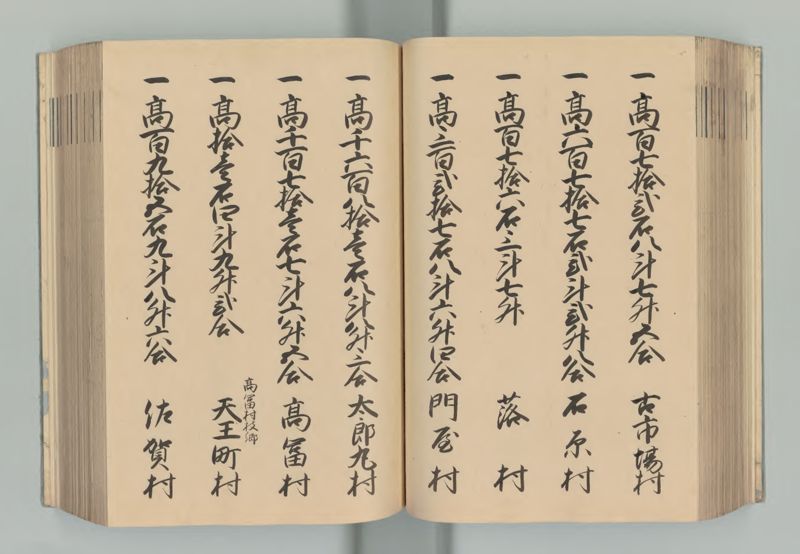 一高百七拾弐石八斗七升五合 古市場村
一高六百七拾七石弐斗弐升八合 石原村
一高百七拾六石三斗七升 落村
一高三百弐拾七石八斗六升四合 門屋村
一高千六百八拾壱石八斗八升三合 太郎丸村
一高千百七拾壱石七斗六升五合 高冨村
一高拾壱石四斗九升弐合 高冨村枝郷 天王町村
一高百九拾五石九斗八升六合 佐賀村